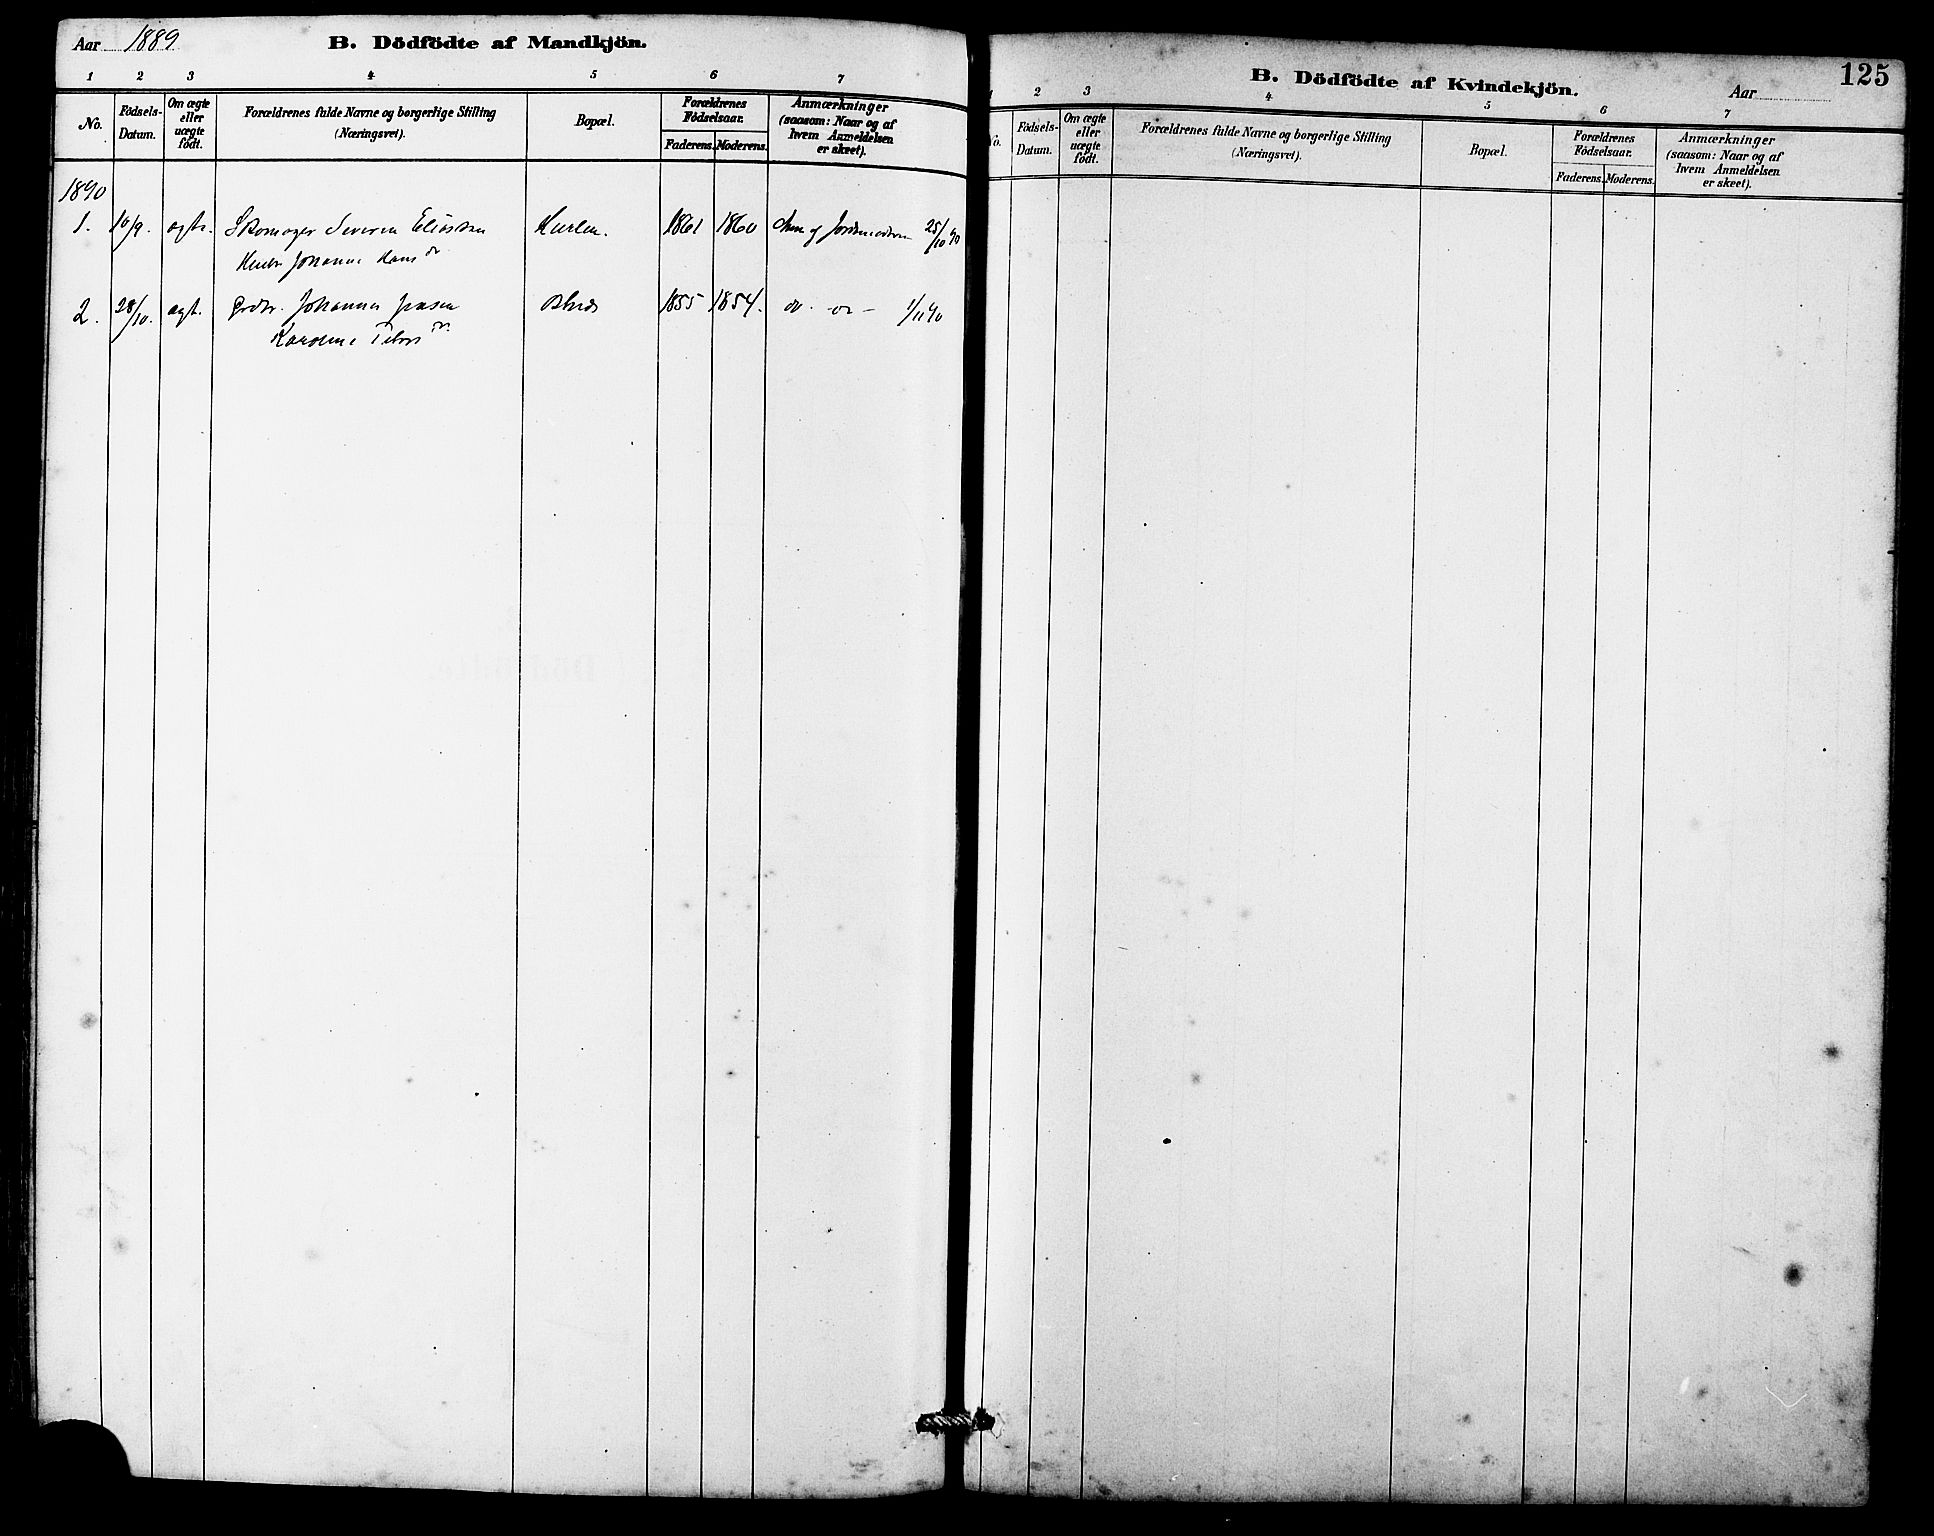 Aar 1889
B. Dödfödte af Mandkjön.
1 2 3 4 5 6 7
No. Födsels-Datum. Om ægte eller uægte födt. Forældrenes fulde Navne og borgerlige Stilling (Næringsvei). Bopæl. Forældrenes Födselsaar. Faderens. Moderens. Anmærkninger (saasom: Naar og af hvem Anmeldelsen er skeet).
1890
1. 10/9. ægte. Skomager Severin Eliassen 1861 1860 af Jordmoderen 25/10 90
Johanne Hansdr
2. 28/10. ægt. Johannes 1855 1854. do - do - 1/11 90
Karoline
125
B. Dödfödte af Kvindekjön.
Aar
1 2 3 4 5 6 7
No. Födsels-Datum. Om ægte eller uægte födt. Forældrenes fulde Navne og borgerlige Stilling (Næringsvei). Bopæl. Forældrenes Födselsaar. Faderens. Moderens. Anmærkninger (saasom: Naar og af hvem Anmeldelsen er skeet).